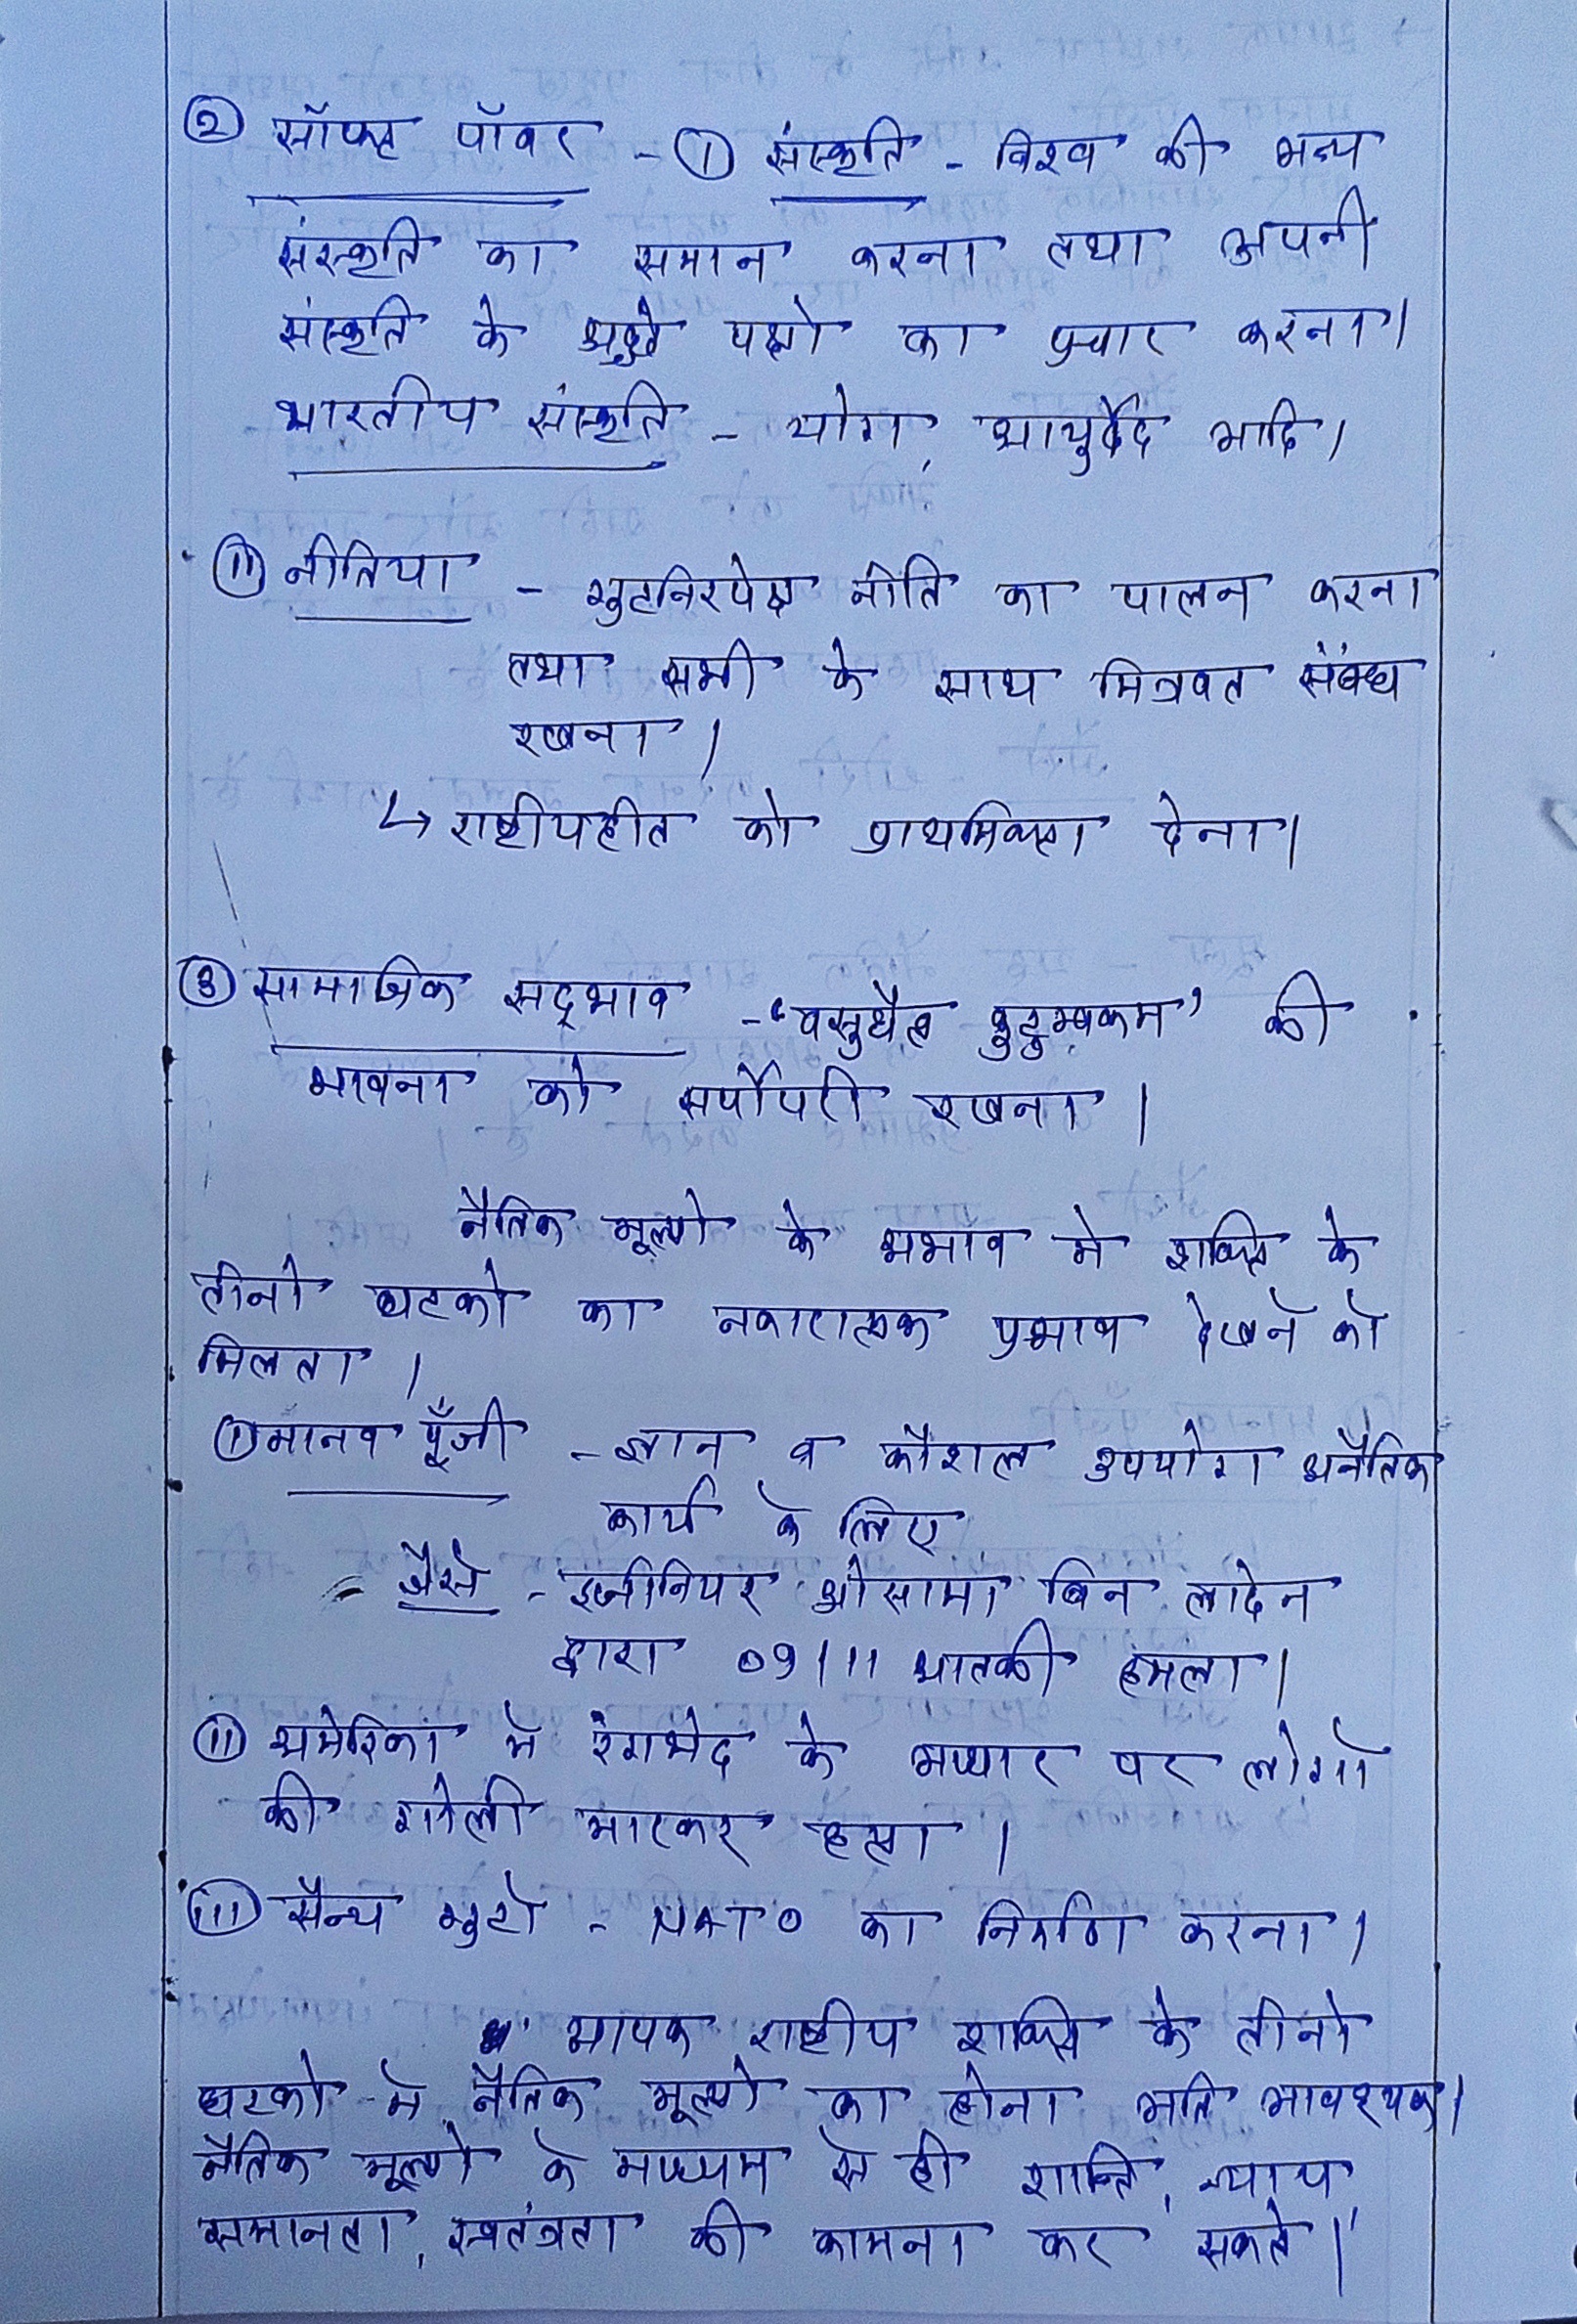 ② सॉफ्ट पॉवर - ① संस्कृति - विश्व की अन्य
संस्कृति का समान करना तथा अपनी
संस्कृति के अच्छे पक्षो का प्रचार करना।
भारतीय संस्कृति - योग, आयुर्वेद आदि।
(ii) नीतिया - गुटनिरपेक्ष नीति का पालन करना
तथा सभी के साथ मित्रवत संबंध
रखना।
↳ राष्ट्रीयहीत को प्राथमिक्ता देना।
③ सामाजिक सद्भाव - 'वसुधैव कुटुम्बकम' की
भावना को सर्पोपरी रखना।
नैतिक मूल्यो के अभाव मे शक्ति के
तीनो घटको का नकारात्मक प्रभाव देखने को
मिलता।
① मानव पूँजी - ज्ञान व कौशल उपयोग अनैतिक
कार्य के लिए
- जैसे - इंजीनियर ओसामा बिन लादेन
द्वारा 09/11 आतकी हमला।
(ii) अमेरिका मे रंगभेद के आधार पर लोगो
की गोली मारकर हत्या।
(iii) सैन्य गुटो - NATO का निर्माण करना।
मापक राष्ट्रीय शक्ति के तीनो
घटको मे नैतिक मूल्यो का होना अति आवश्यक।
नैतिक मूल्यो के माध्यम से ही शान्ति, न्याय
समानता, स्वतंत्रता की कामना कर सकते।